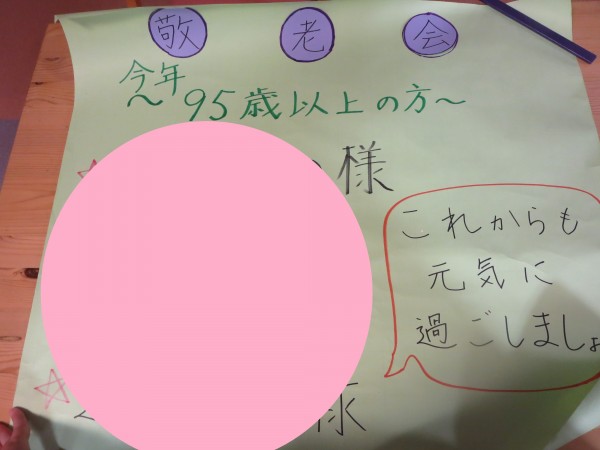 敬老会
今年
～95歳以上の方～
様
これからも
元気に
過ごしましょ
様